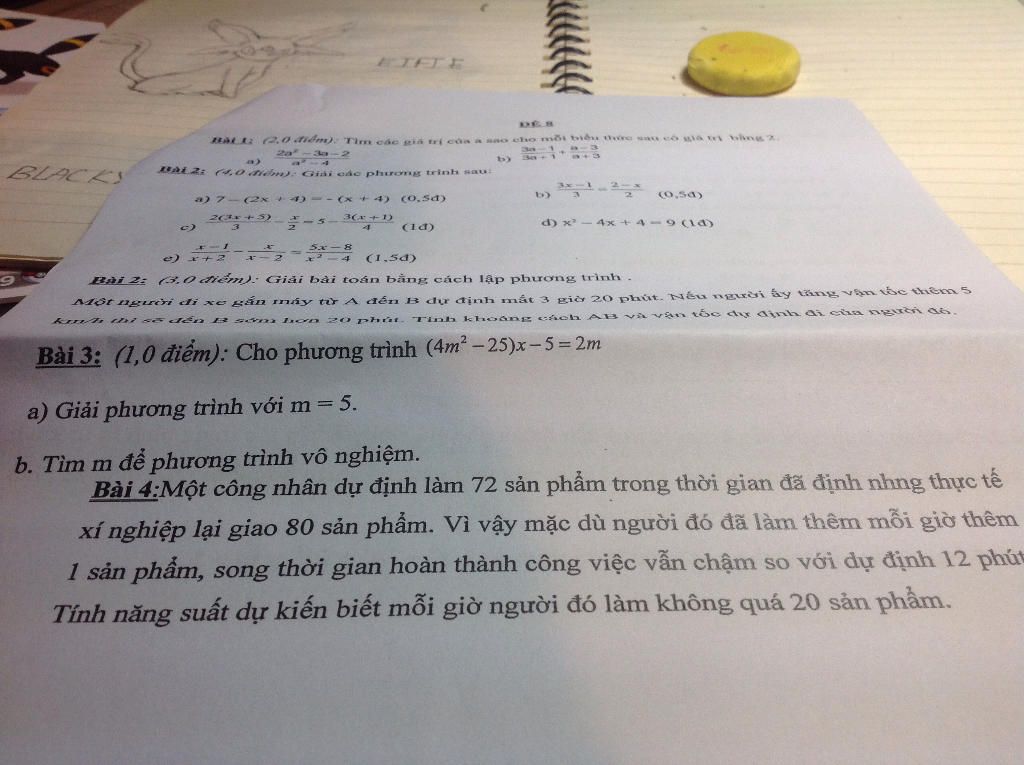 EIFIE
BLACKY
9
ĐỀ 8
Bài 1: (2,0 điểm): Tìm các giá trị của a sao cho mỗi biểu thức sau có giá trị bằng 2.
a) (2a² − 3a − 2)/(a² − 4) b) (3a − 1)/(3a + 1) + (a − 3)/(a + 3)
Bài 2: (4,0 điểm): Giải các phương trình sau:
a) 7 – (2x + 4) = - (x + 4) (0,5đ) b) (3x − 1)/3 = (2 − x)/2 (0,5đ)
c) 2(3x + 5)/3 − x/2 = 5 − 3(x + 1)/4 (1đ) d) x² – 4x + 4 = 9 (1đ)
e) (x − 1)/(x + 2) − x/(x − 2) = (5x − 8)/(x² − 4) (1,5đ)
Bài 2: (3,0 điểm): Giải bài toán bằng cách lập phương trình .
Một người đi xe gắn máy từ A đến B dự định mất 3 giờ 20 phút. Nếu người ấy tăng vận tốc thêm 5
km/h thì sẽ đến B sớm hơn 20 phút. Tính khoảng cách AB và vận tốc dự định đi của người đó.
Bài 3: (1,0 điểm): Cho phương trình (4m² − 25)x − 5 = 2m
a) Giải phương trình với m = 5.
b. Tìm m để phương trình vô nghiệm.
Bài 4:Một công nhân dự định làm 72 sản phẩm trong thời gian đã định nhng thực tế
xí nghiệp lại giao 80 sản phẩm. Vì vậy mặc dù người đó đã làm thêm mỗi giờ thêm
1 sản phẩm, song thời gian hoàn thành công việc vẫn chậm so với dự định 12 phút
Tính năng suất dự kiến biết mỗi giờ người đó làm không quá 20 sản phẩm.